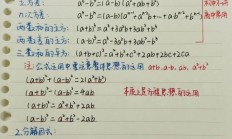 a³-b³=(a-b)(a²+ab+b²)
n次方差: aⁿ-bⁿ=(a-b)(aⁿ⁻¹+aⁿ⁻²b+…+abⁿ⁻²+bⁿ⁻¹)
两数和的立方: (a+b)³=a³+3a²b+3ab²+b³
两数差的立方: (a-b)³=a³-3a²b+3ab²-b³
三数和的平方: (a+b+c)²=a²+b²+c²+2ab+2bc+2ca
注: 公式运用中要注意整体思想的运用 a+b, a-b, ab, a²+b²
(a+b)²+(a-b)²=2(a²+b²)
(a+b)²-(a-b)²=4ab
(a+b)²=a²+b²+2ab
(a-b)²=a²+b²-2ab
方程思想的运用
2.分解因式: